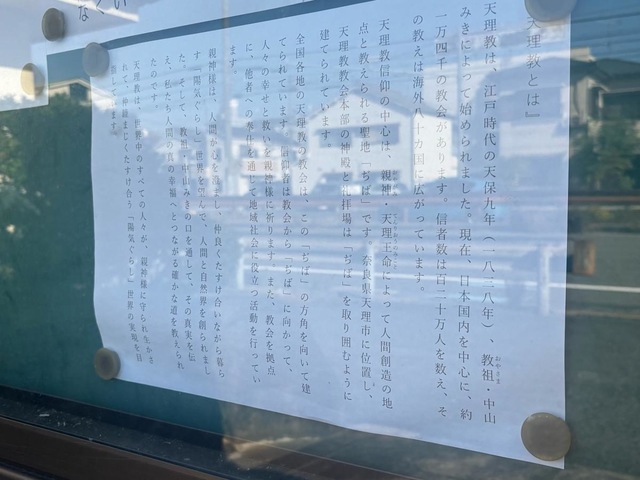 なくい
『天理教とは』
天理教は、江戸時代の天保九年（一八三八年）、教祖・中山
おやさま
みきによって始められました。現在、日本国内を中心に、約
一万四千の教会があります。信者数は百二十万人を数え、そ
の教えは海外八十カ国に広がっています。
天理教信仰の中心は、親神・天理王命によって人間創造の地
点と教えられる聖地「ぢば」です。奈良県天理市に位置し、
天理教教会本部の神殿と礼拝場は「ぢば」を取り囲むように
建てられています。
全国各地の天理教の教会は、この「ぢば」の方角を向いて建
てられています。信仰者は教会から「ぢば」に向かって、
人々の幸せと救いを親神様に祈ります。また、教会を拠点
に、他者への奉仕を通して地域社会に役立つ活動を行ってい
ます。
親神様は、人間が心を澄まし、仲良くたすけ合いながら暮ら
す「陽気ぐらし」世界を望んで、人間と自然界を創られまし
た。そして、教祖・中山みきの口を通して、その真実を伝
え、私たち人間の真の幸福へとつながる確かな道を教えられ
たのです。
天理教は、世界中のすべての人々が、親神様に守られ生かさ
れて、仲睦まじくたすけ合う「陽気ぐらし」世界の実現を目
指しています。